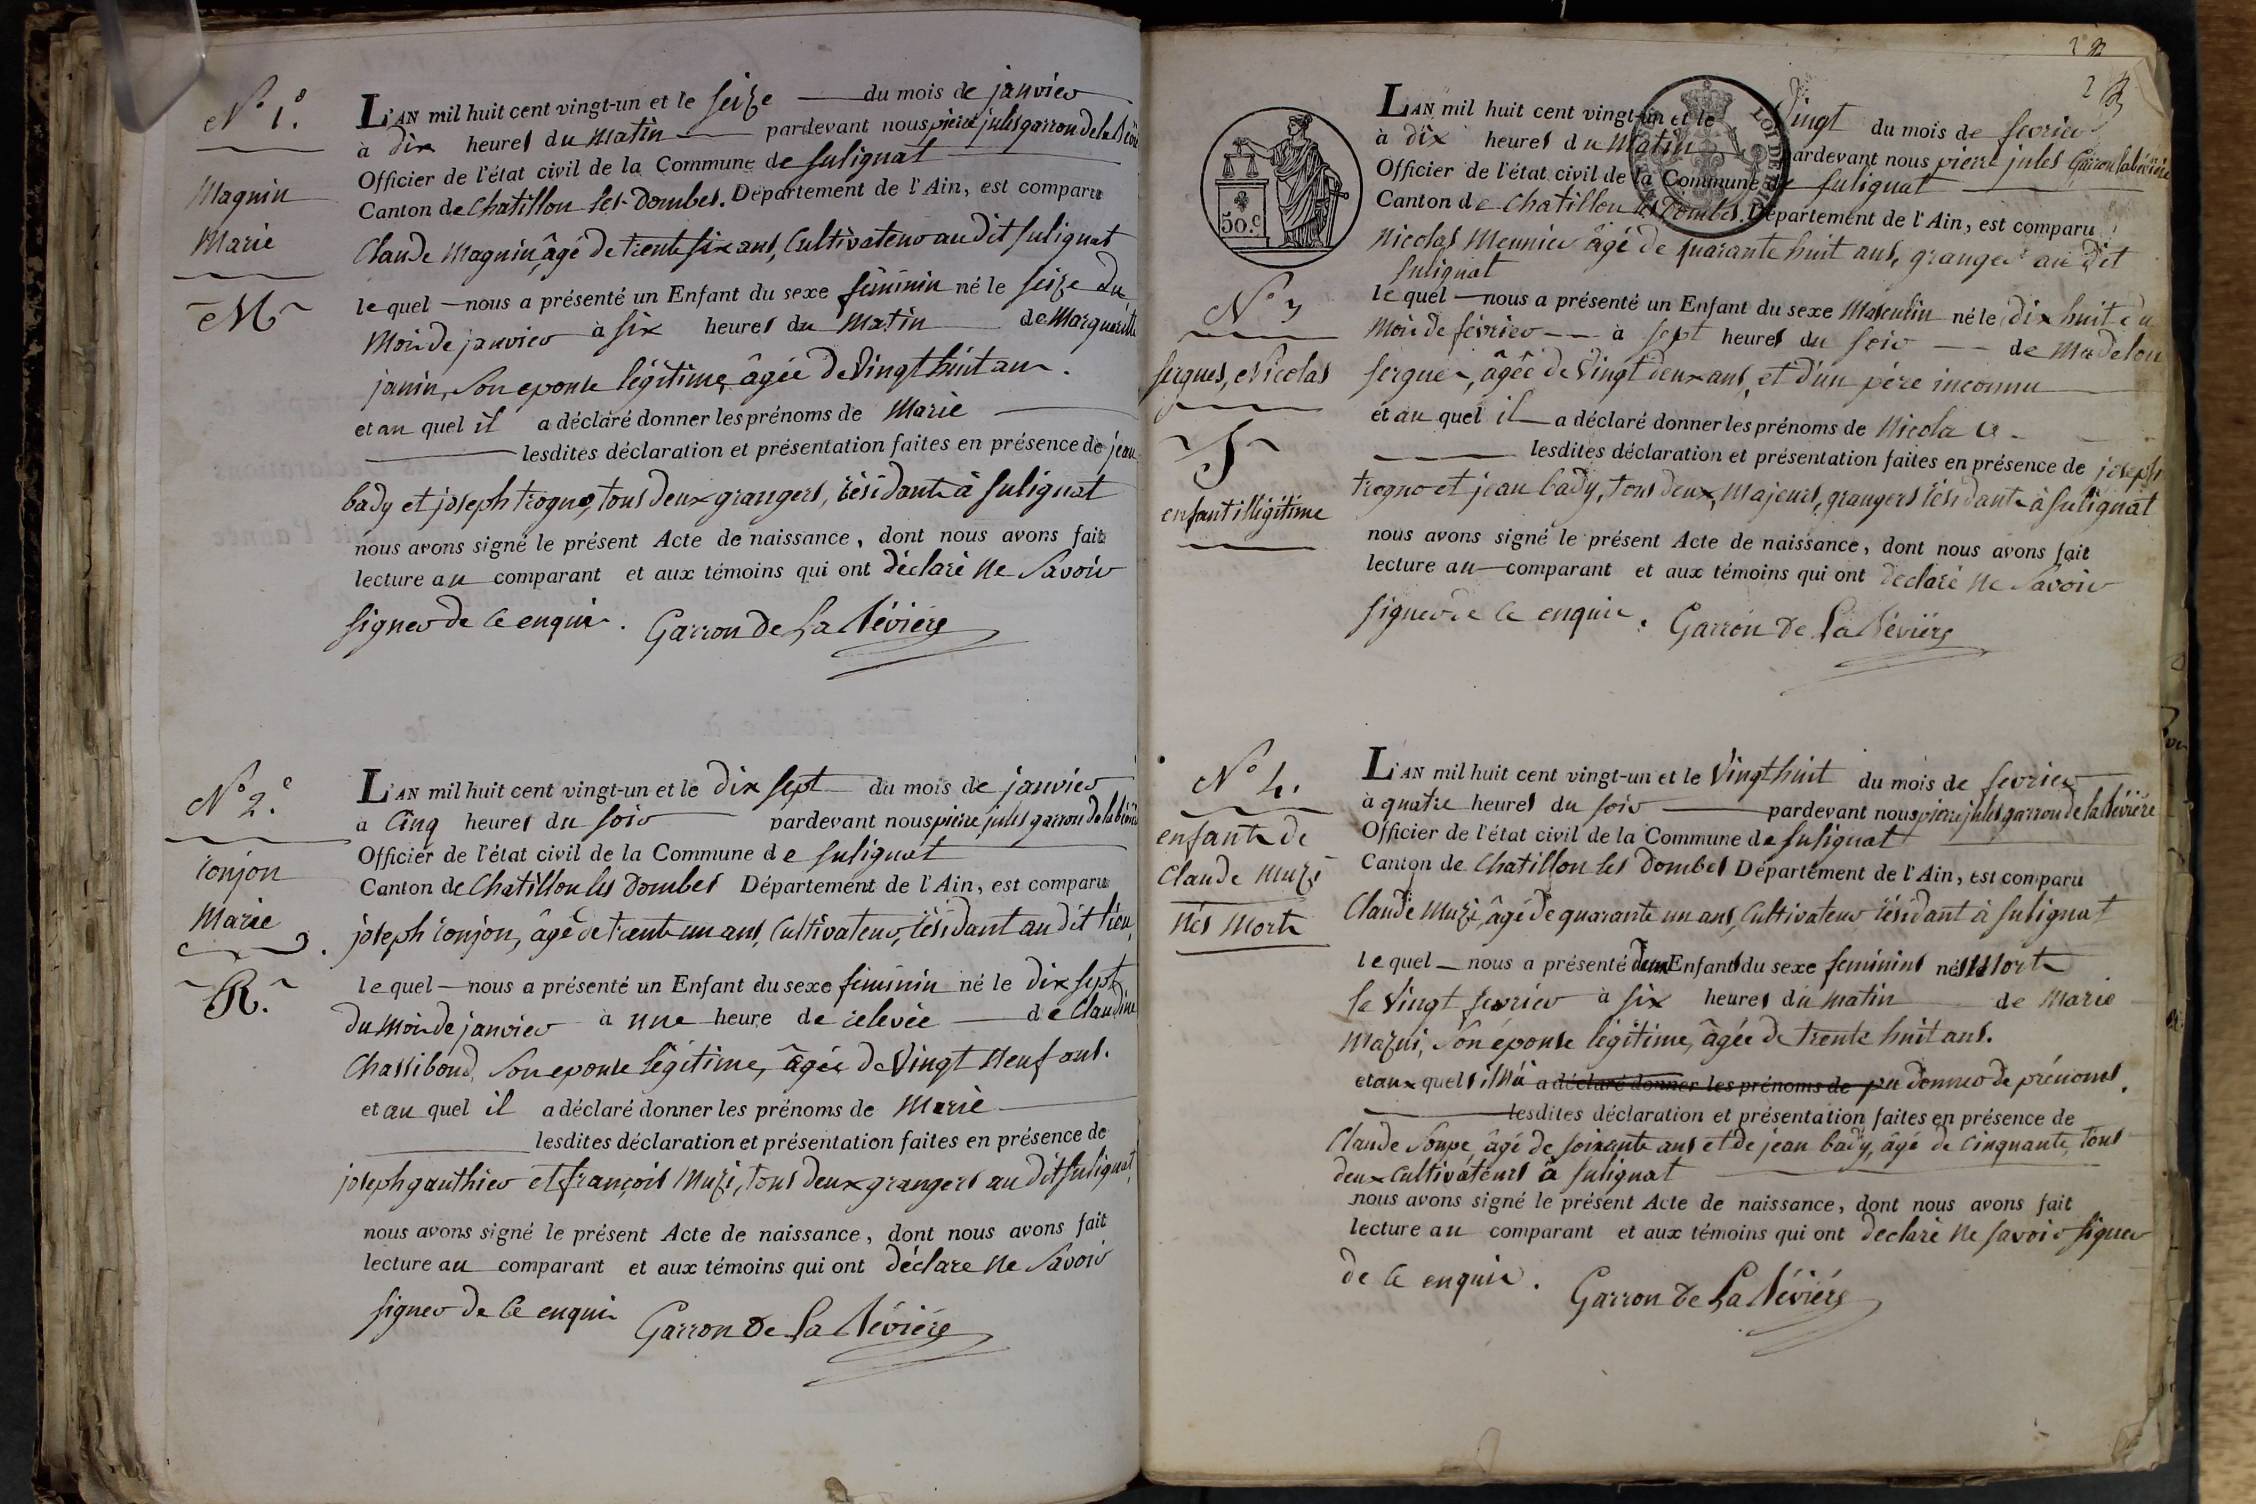 N.o 1.e
Maguin
Marie
M
L'AN mil huit cent vingt-un et le seize du mois de janvier
à dix heures du matin pardevant nous pierre jules garron de la
Officier de l'état civil de la Commune de sulignat
Canton de Chatillon les Dombes. Département de l'Ain, est comparu
Claude Maguin, âgé de trente six ans, Cultivateur au dit sulignat
le quel nous a présenté un Enfant du sexe féminin né le seize du
mois de janvier à six heures du matin de Marguerite
janin, son epouse légitime, âgée de Vingt huit ans.
et au quel il a déclaré donner les prénoms de Marie
lesdites déclaration et présentation faites en présence de jean
bady et joseph trogno, tous deux grangers, résidants à sulignat
nous avons signé le présent Acte de naissance, dont nous avons fait
lecture au comparant et aux témoins qui ont déclaré ne Savoir
signer de ce enquis. Garron de La Bévière
N.o 2.e
ronjon
Marie
R.
L'AN mil huit cent vingt-un et le dix sept du mois de janvier
à Cinq heures du soir pardevant nous pierre jules garron de la
Officier de l'état civil de la Commune de sulignat
Canton de Chatillon les Dombes Département de l'Ain, est comparu
joseph ronjon, âgé de trente un ans, Cultivateur, résidant au dit lieu,
le quel nous a présenté un Enfant du sexe féminin né le dix sept
du mois de janvier à une heure de relevée de Claudine
Chassibond, Son epouse légitime, âgée de Vingt Neuf ans.
et au quel il a déclaré donner les prénoms de Marie
lesdites déclaration et présentation faites en présence de
joseph gauthier et françois Muzi, tous deux grangers au dit sulignat,
nous avons signé le présent Acte de naissance, dont nous avons fait
lecture au comparant et aux témoins qui ont déclare ne Savoir
signer de Ce enquis Garron de La Bévière
50.c
N.o 3
serques, Nicolas
S
enfant illigitime
L'AN mil huit cent vingt-un et le Vingt du mois de fevrier
à dix heures du Matin pardevant nous pierre jules Garron labévière
Officier de l'état civil de la Commune de sulignat
Canton de Chatillon les Dombes. Département de l'Ain, est comparu
Nicolas Meunier âgé de quarante huit ans, granger au dit
sulignat
le quel nous a présenté un Enfant du sexe Masculin né le dix huit du
Mois de février à sept heures du soir de Madelon
serques, âgée de Vingt deux ans, et d'un père inconnu
et au quel il a déclaré donner les prénoms de Nicolas
lesdites déclaration et présentation faites en présence de joseph
trogno et jean bady, tous deux, Majeurs, grangers résidants à sulignat
nous avons signé le présent Acte de naissance, dont nous avons fait
lecture au comparant et aux témoins qui ont déclaré ne Savoir
signer de Ce enquis. Garron de La Bévière
N.o 4.
enfants de
Claude Muzi
Nés Morts
L'AN mil huit cent vingt-un et le Vingt huit du mois de fevrier
à quatre heures du soir pardevant nous pierre jules garron de la Bévière
Officier de l'état civil de la Commune de sulignat
Canton de Chatillon les Dombes Département de l'Ain, est comparu
Claude Muzi, âgé de quarante un ans, Cultivateur résidant à sulignat
le quel nous a présenté deux Enfants du sexe feminins nés Morts
le Vingt fevrier à six heures du matin de Marie
Mazui, Son épouse légitime, âgée de trente huit ans.
et aux quels il n'a a déclaré donner les prénoms de pu donner de prénoms.
lesdites déclaration et présentation faites en présence de
Claude Soupe, âgé de soixante ans et de jean bady, âgé de Cinquante, tous
deux Cultivateurs à sulignat
nous avons signé le présent Acte de naissance, dont nous avons fait
lecture au comparant et aux témoins qui ont declaré ne savoir signer
de Ce enquis. Garron de La Bévière